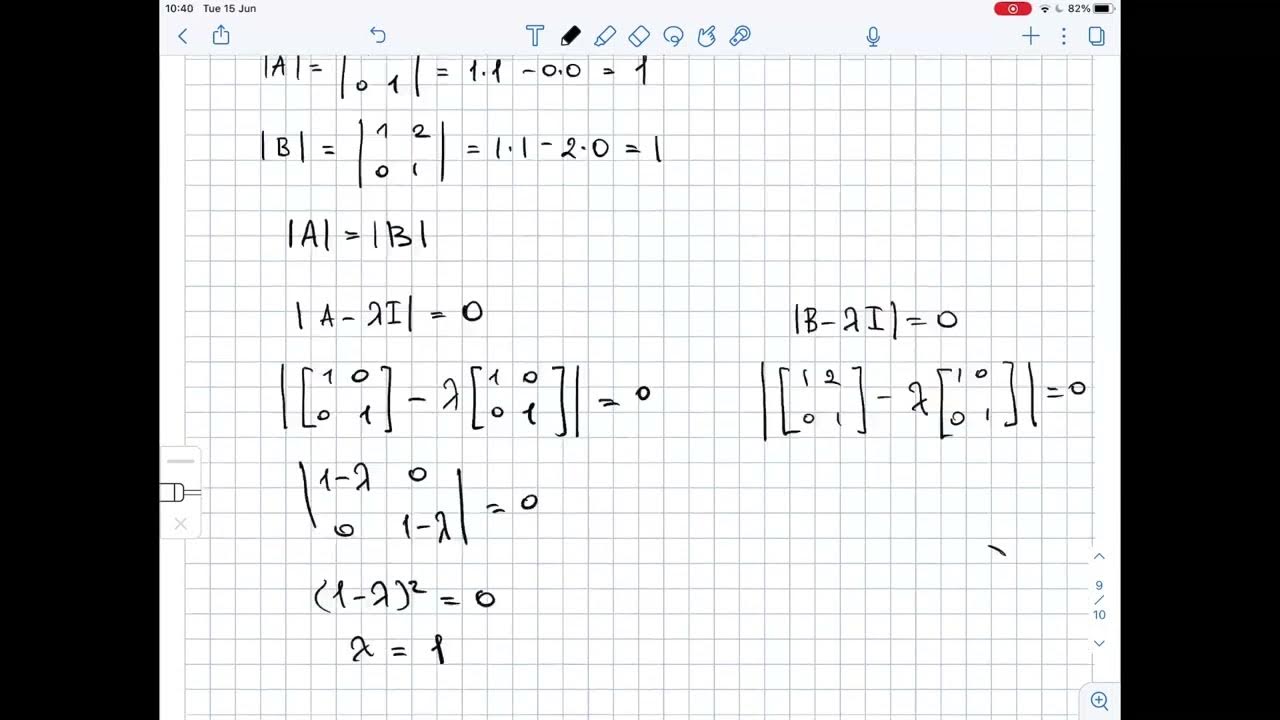 10:40 Tue 15 Jun
82%
T
|A| = | 0 1 | = 1.1 - 0.0 = 1
|B| = | 1 2
0 1 | = 1.1 - 2.0 = 1
|A| = |B|
|A - λI| = 0
|[1 0
0 1] - λ[1 0
0 1]| = 0
|1-λ 0
0 1-λ| = 0
(1-λ)² = 0
λ = 1
|B - λI| = 0
|[1 2
0 1] - λ[1 0
0 1]| = 0
9
/
10